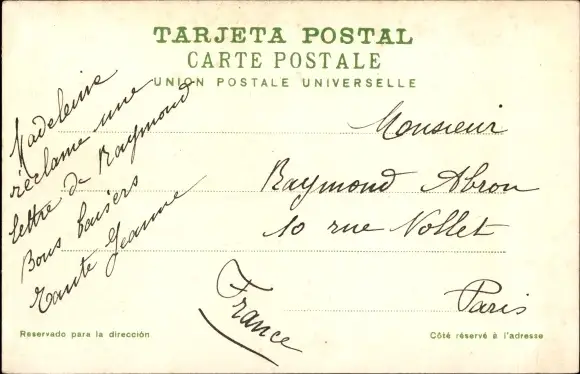 TARJETA POSTAL
CARTE POSTALE
UNION POSTALE UNIVERSELLE
Madeleine
réclame une
lettre de Raymond
Bons baisers
Tante Jeanne
Monsieur
Raymond Abron
10 rue Nollet
Paris
France
Reservado para la dirección
Côté réservé à l'adresse